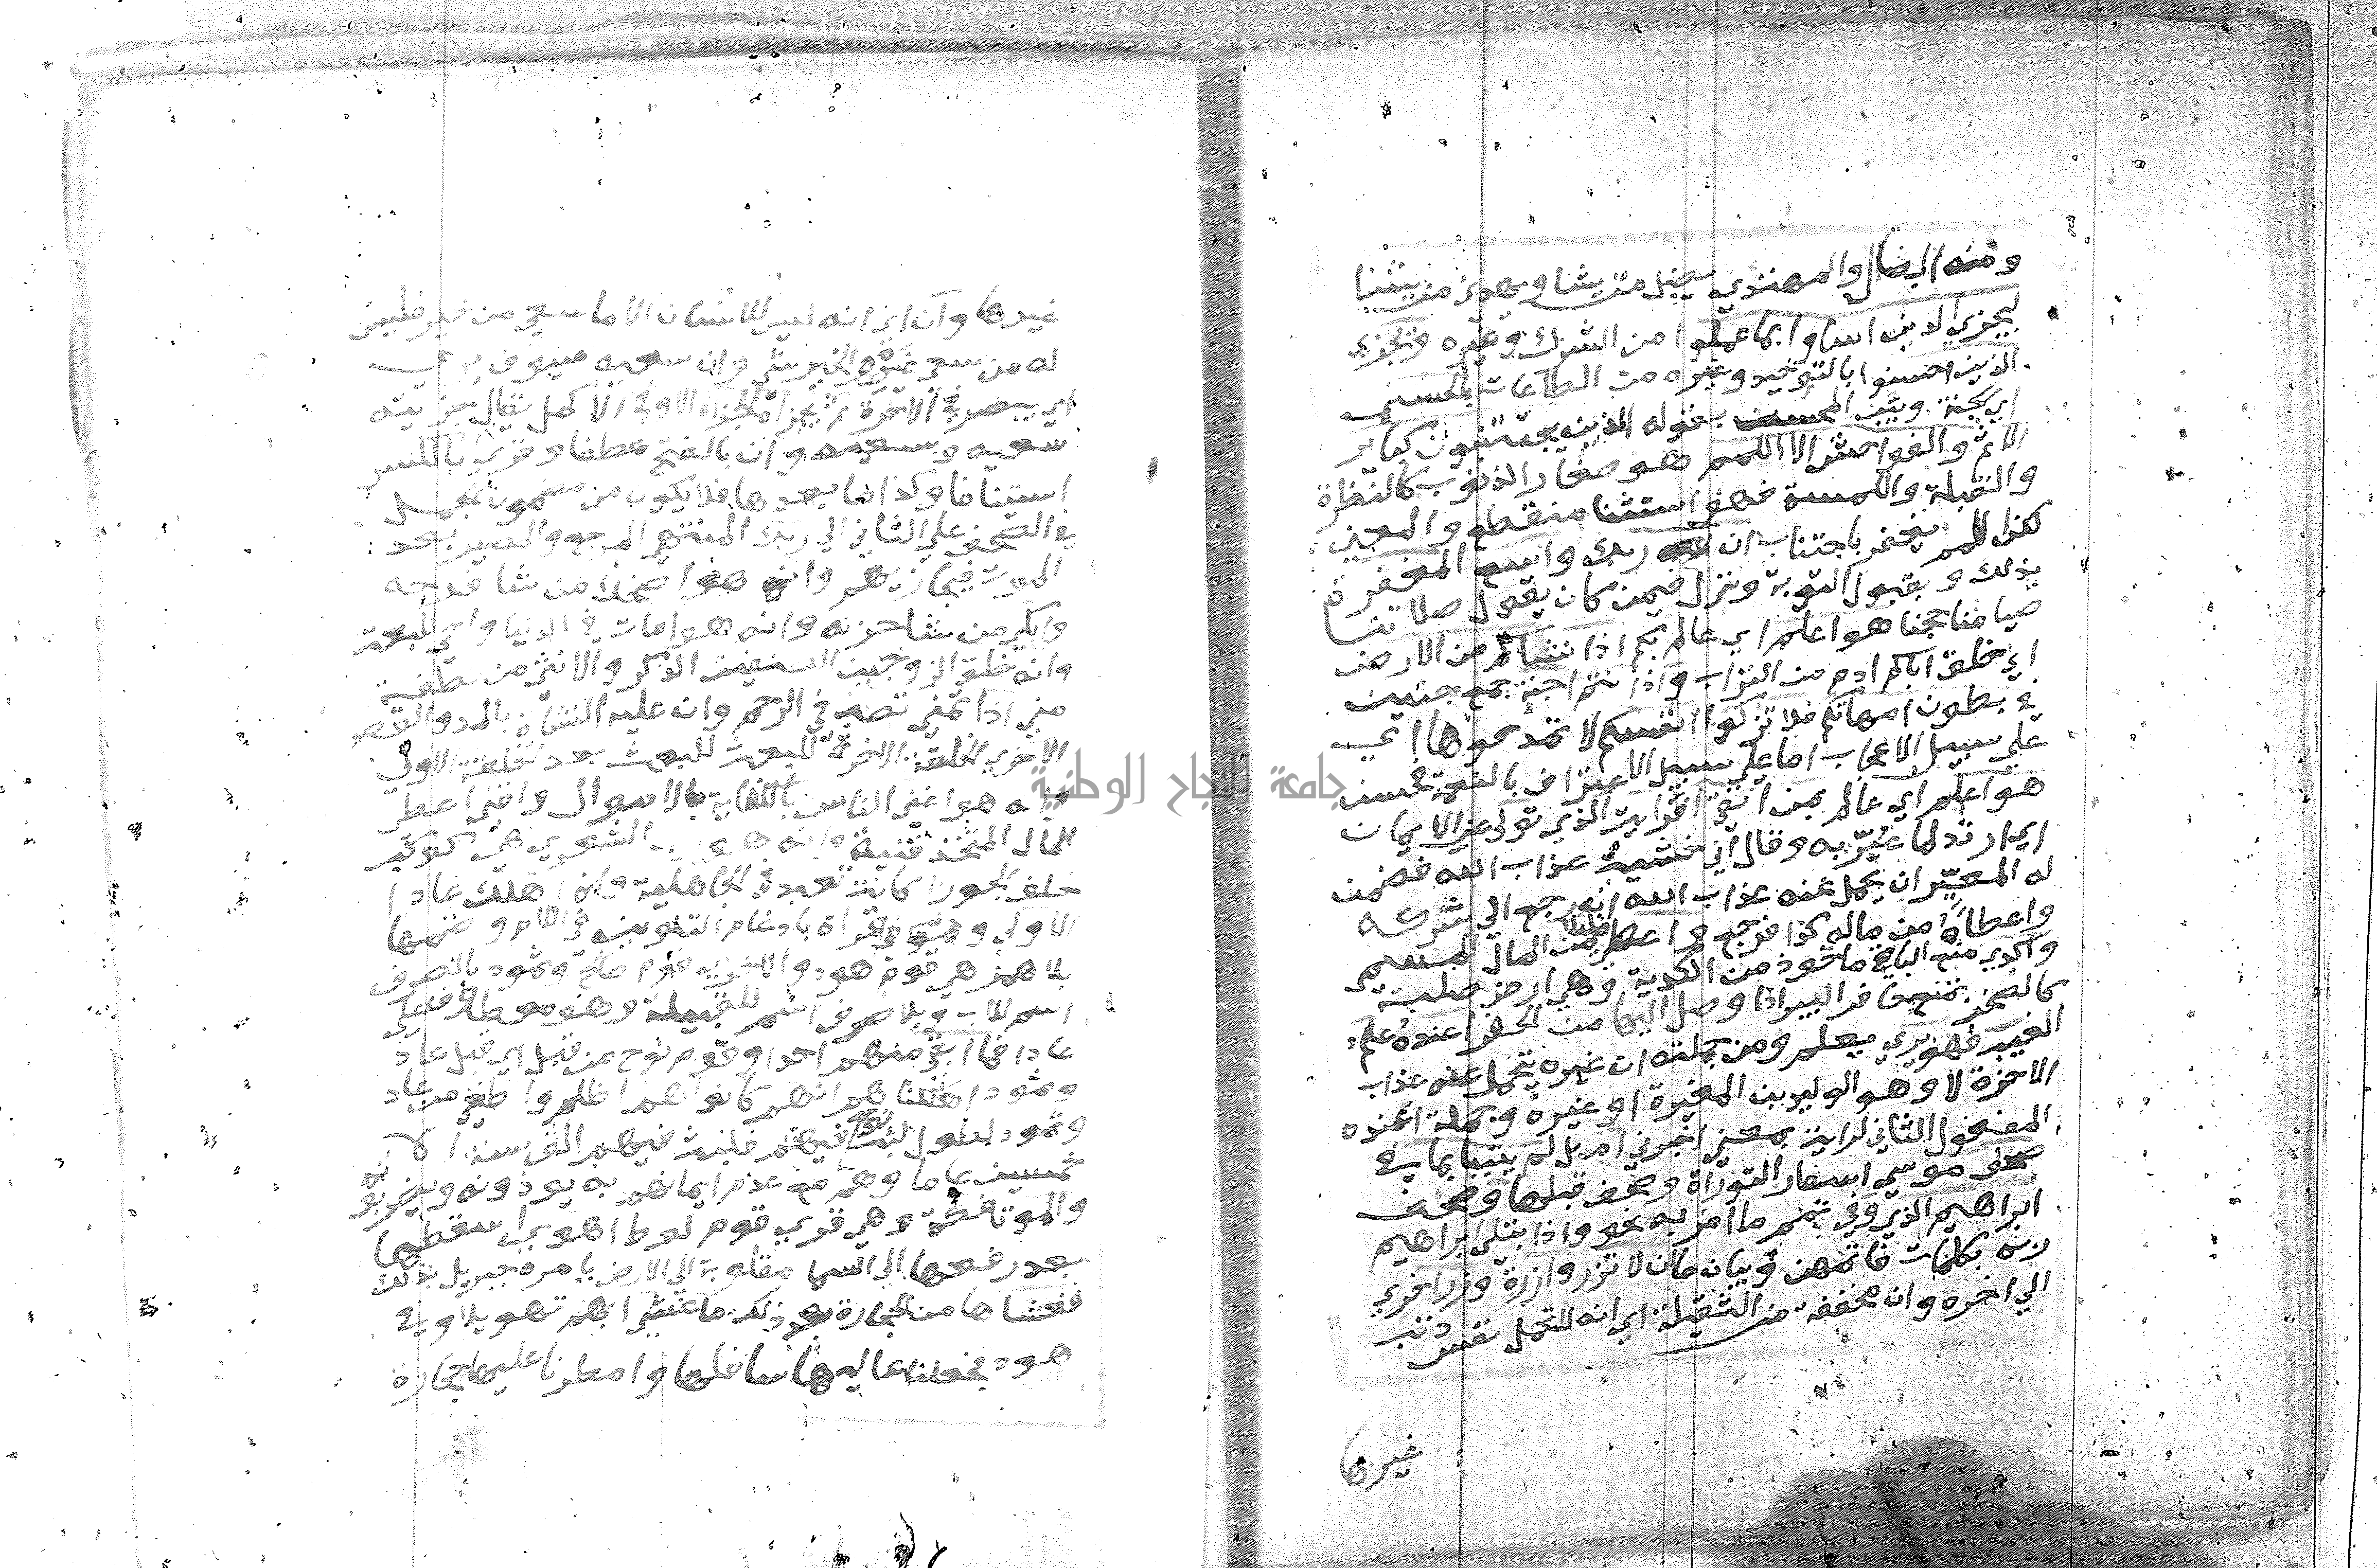 ومنه الضال والمهتدي يضل من يشا ويهدي من يشا
ليجزي الذين اساوا بما عملوا من الشرك وغيره ويجزي
الذين احسنوا بالتوحيد وغيره من الطاعات بالحسني
اي الجنة وبين المحسنين بقوله الذين يجتنبون كباير
الاثم والفواحش الا اللمم هو صغار الذنوب كالنظرة
والقبلة واللمسة فهو استثنا منقطع والمعني
لكن اللمم يغفر باجتناب ان ربك واسع المغفرة
بذلك وبقبول التوبة ونزل فيمن كان يقول صلاتنا
صيامنا حجنا هو اعلم اي عالم بكم اذا نشاكم من الارض
اي خلق اباكم ادم من التراب واذا نتم اجنة جمع جنين
في بطون امهاتكم فلا تزكوا انفسكم لا تمدحوها اي
علي سبيل الاعجاب اما علي سبيل الاعتراف بالنعمة فحسن
هو اعلم اي عالم بمن اتقي افرايت الذي تولي عن الايمان
اي ارتد لما عيّر به وقال اني خشيت عذاب الله فضمن
له المعيّر ان يحمل عنه عذاب الله ان رجع الي شركه
واعطاه من ماله كذا فرجع واعطي قليلا من المال المسمي
واكدي منع الباقي ماخوذ من الكدية وهي ارض صلبة
كالصخر تمنع حافر البير اذا وصل اليها من الحفر اعنده علم
الغيب فهو يري يعلم ومن جملته ان غيره يتحمل عنه عذاب
الاخرة لا وهو الوليد بن المغيرة او غيره وجملة اعنده
المفعول الثاني لرايت بمعني اخبرني ام بل لم ينبا بما في
صحف موسي اسفار التوراة وصحف قبلها وصحف
ابراهيم الذي وفي تمم ما امر به نحو واذا بتلي ابراهيم
ربه بكلمات فاتمهن وبيان ما ان لا تزر وازرة وزر اخري
الي اخره وان مخففة من الثقيلة اي انه لا تحمل نفس ذنب
غيرها
غيرها وان اي انه ليس للانسان الا ما سعي من خير فليس
له من سعي غيره الخير شي وان سعيه سوف يري
اي يبصر في الاخرة ثم يجزاه الجزاء الاوفي الاكمل يقال جزيته
سعيه وبسعيه وان بالفتح عطفا وقري بالكسر
استينافا وكذا ما بعدها فلا يكون من مضمون الجمل
في الصحف علي الثاني الي ربك المنتهي المرجع والمصير بعد
الموت فيجازيهم وانه هو اضحك من شا فرحه
وابكي من شا حزنه وانه هو امات في الدنيا واحي للبعث
وانه خلق الزوجين الصنفين الذكر والانثي من نطفة
مني اذا تمني تصب في الرحم وان عليه النشاة بالمد والقصر
الاخري الخلقة الاخرة للبعث بعد الخلقة الاولي
وانه هو اغني الناس بالكفاية بالاموال واقني اعطي
المال المتخذ قنية وانه هو رب الشعري هي كوكب
خلف الجوزا كانت تعبد في الجاهلية وانه اهلك عادا
الاولي وفي قراة بادغام التنوين في اللام وضمها
بلا همز هي قوم هود والاخري قوم صالح وثمود بالصرف
اسم للاب وبلا صرف اسم للقبيلة وهو معطوف علي
عادا فما ابقي منهم احدا وقوم نوح من قبل اي قبل عاد
وثمود اهلكناهم انهم كانوا هم اظلم واطغي من عاد
وثمود لطول لبث نوح فيهم فلبث فيهم الف سنة الا
خمسين عاما وهم مع عدم ايمانهم به يوذونه ويضربونه
والموتفكة وهي قري قوم لوط اهوي اسقطها
بعد رفعها الي السما مقلوبة الي الارض بامره جبريل بذلك
فغشاها من الحجارة بعد ذلك ما غشي ابهم تهويلا وفي
هود فجعلنا عاليها سافلها وامطرنا عليها حجارة
جامعة النجاح الوطنية